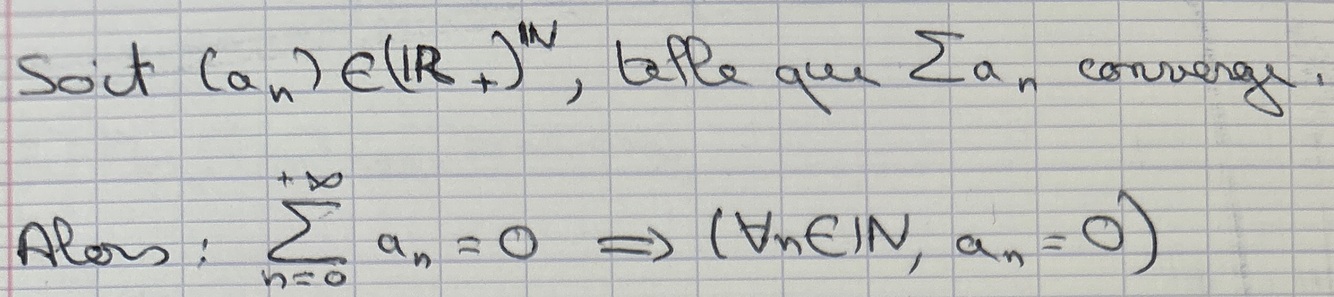 Soit (aₙ) ∈ (ℝ₊)^ℕ, telle que Σaₙ converge.
Alors : Σ_{n=0}^{+∞} aₙ = 0 ⟹ (∀n∈ℕ, aₙ = 0)